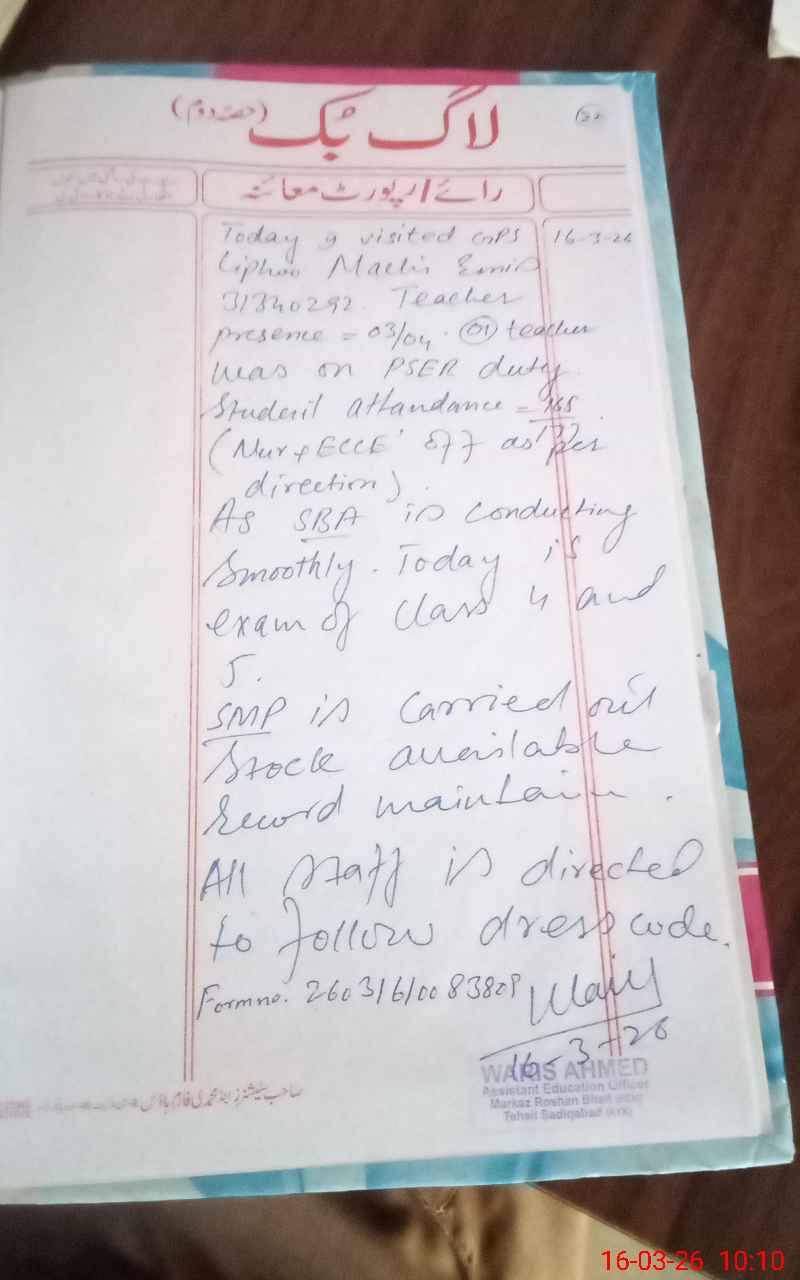 لاگ بک (حصہ دوم)
22
رائے/رپورٹ معائنہ
Today I visited GPS
16-3-26
Liphoo Machi Emis
31340292. Teacher
presense = 03/04. 01 teacher
was on PSER duty.
Student attandance = 165
(Nur + ECCE off as per
direction).
As SBA is conducting
smoothly. Today is
exam of class 4 and
5.
SMP is carried out
Stock available
record maintain.
All staff is directed
to follow dress code.
Form no. 260316100838
16-3-26
WARIS AHMED
Assistant Education Officer
Markaz Roshan Bhait
Tehsil Sadiqabad (RYK)